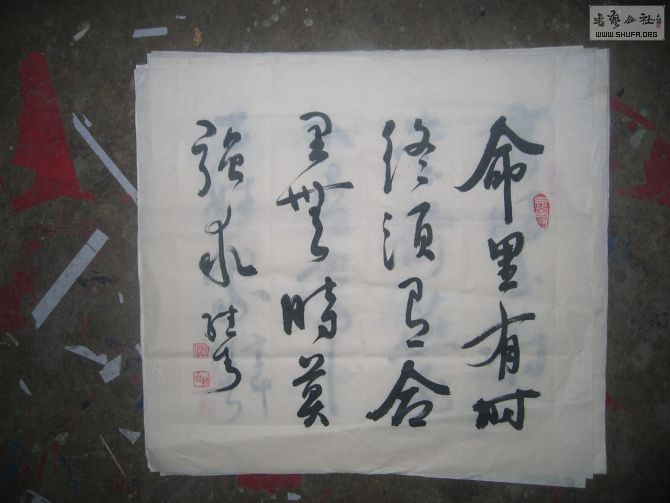 命里有时
终须有命
里無時莫
強求
書藝公社
WWW.SHUFA.ORG